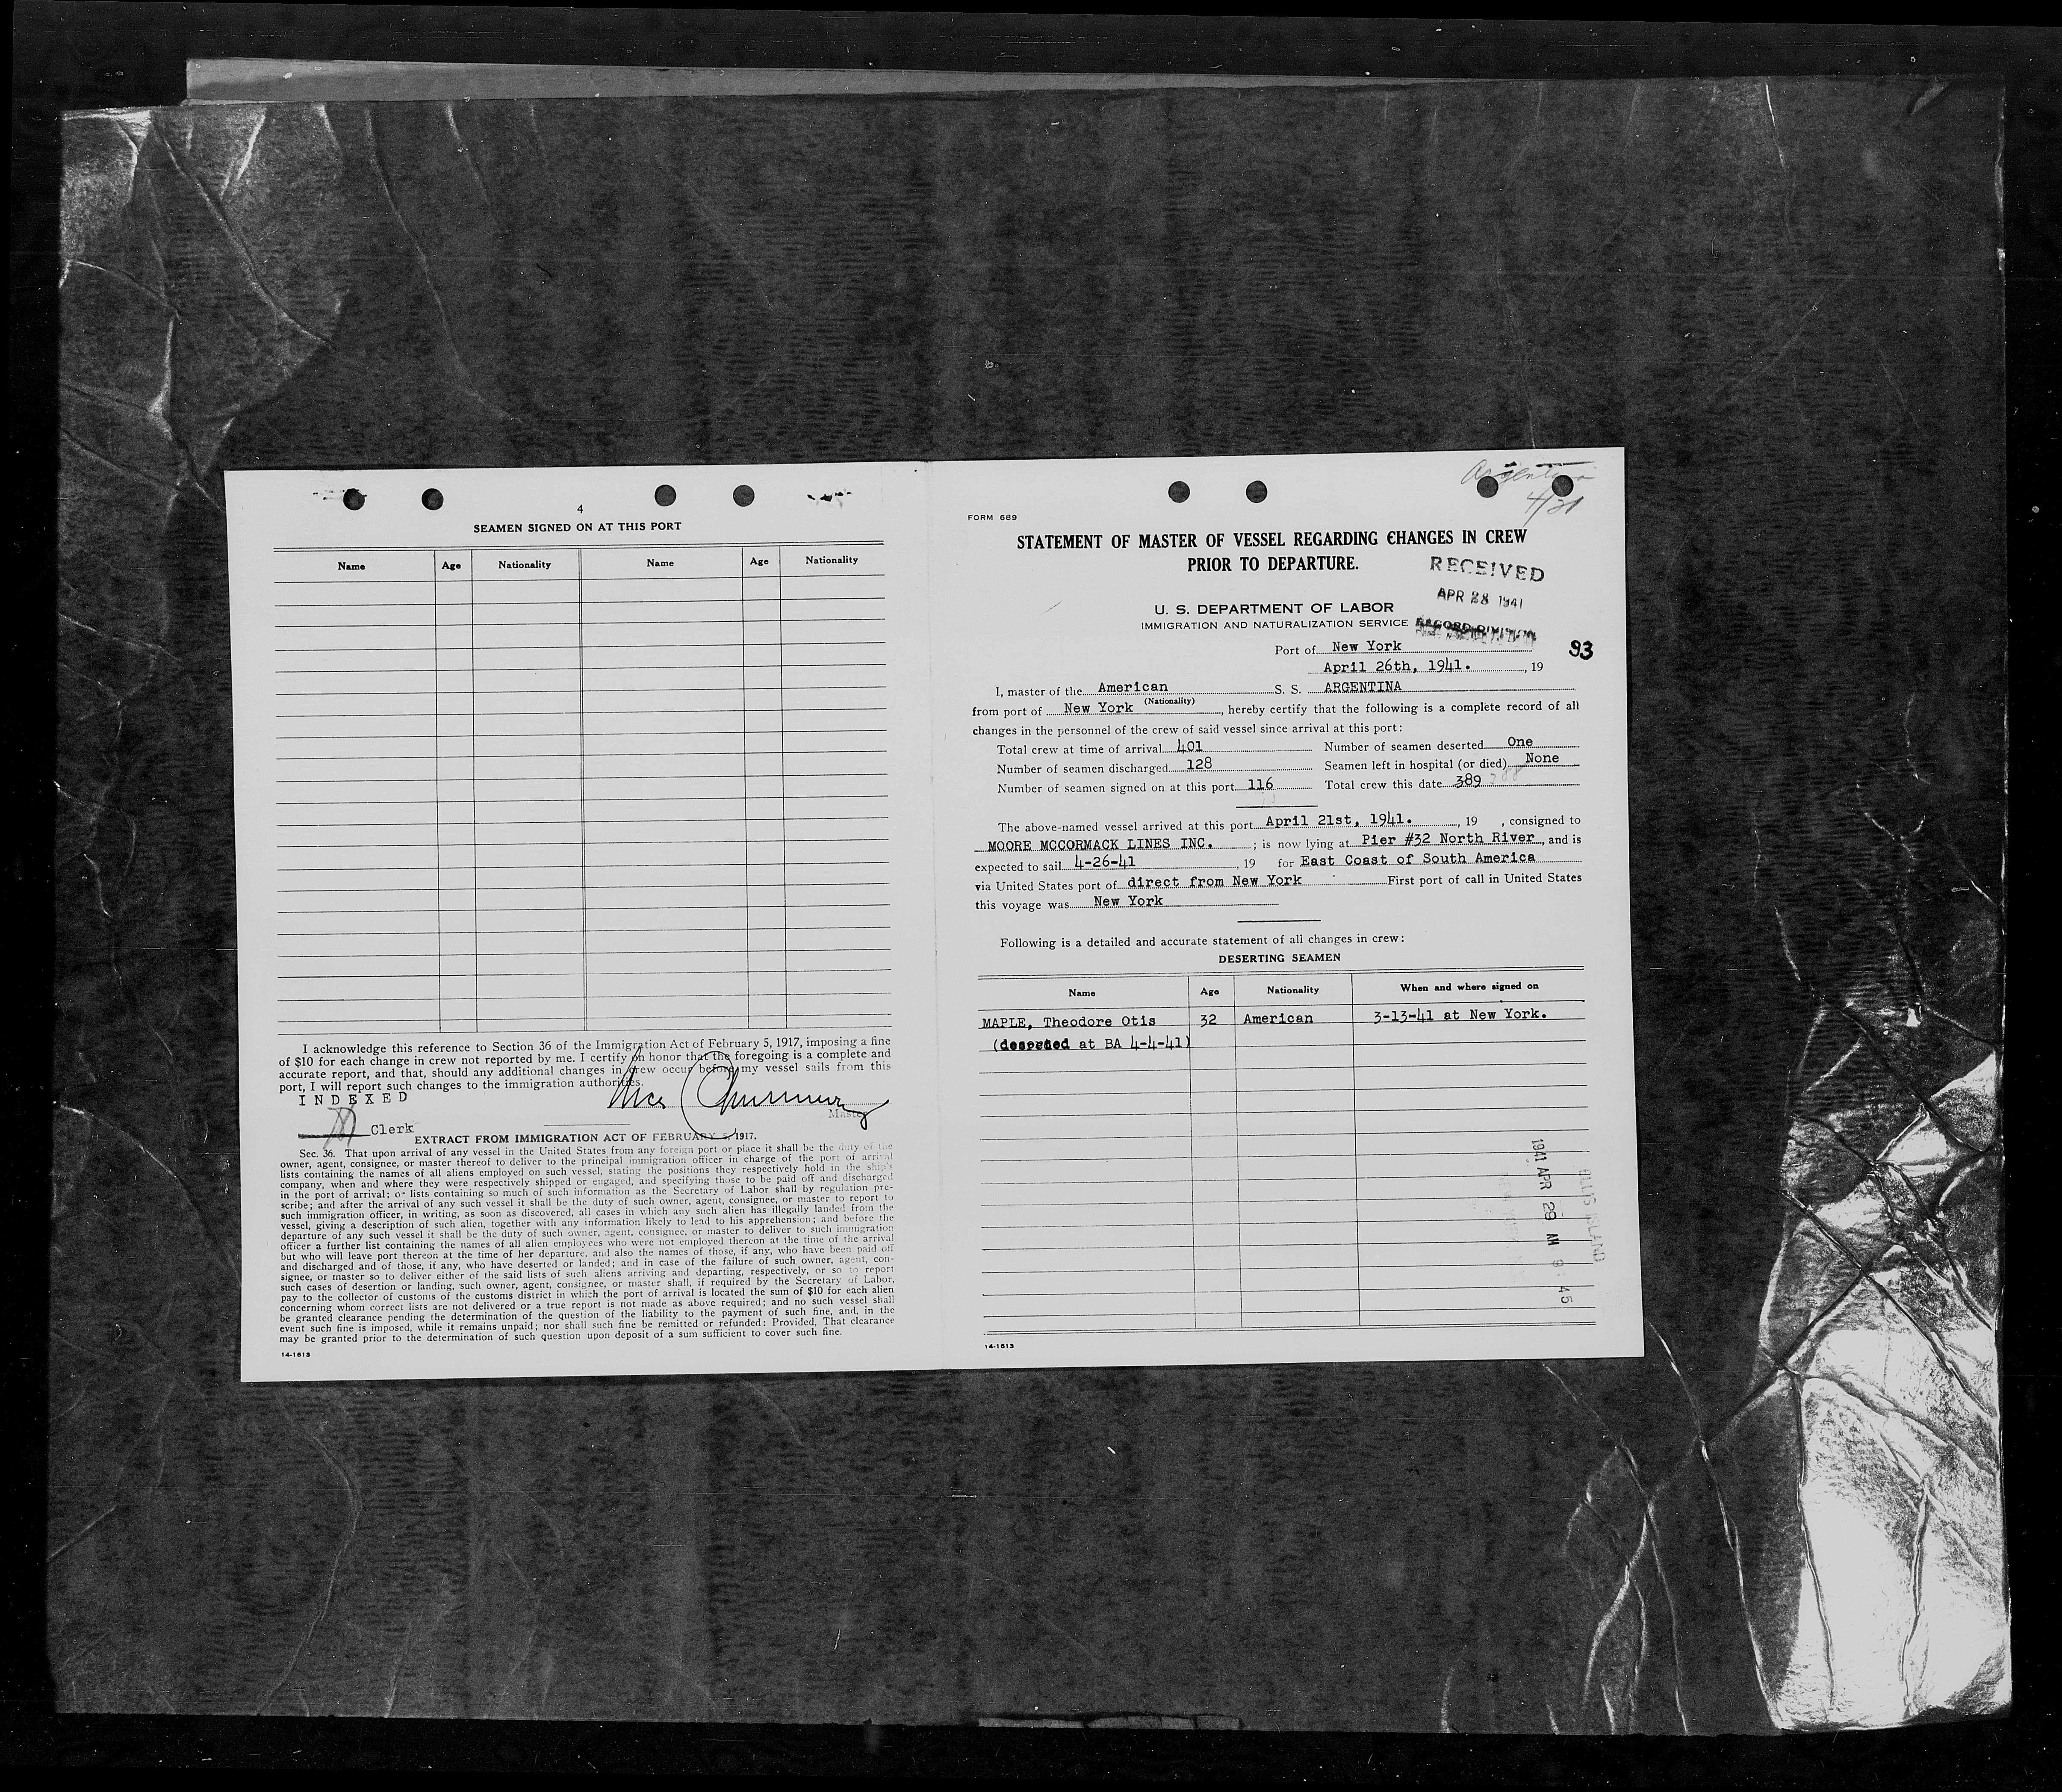 4
SEAMEN SIGNED ON AT THIS PORT
Name Age Nationality Name Age Nationality
I acknowledge this reference to Section 36 of the Immigration Act of February 5, 1917, imposing a fine
of $10 for each change in crew not reported by me. I certify on honor that the foregoing is a complete and
accurate report, and that, should any additional changes in crew occur before my vessel sails from this
port, I will report such changes to the immigration authorities.
INDEXED
Master
Clerk
EXTRACT FROM IMMIGRATION ACT OF FEBRUARY 5, 1917.
Sec. 36. That upon arrival of any vessel in the United States from any foreign port or place it shall be the duty of the
owner, agent, consignee, or master thereof to deliver to the principal immigration officer in charge of the port of arrival
lists containing the names of all aliens employed on such vessel, stating the positions they respectively hold in the ship's
company, when and where they were respectively shipped or engaged, and specifying those to be paid off and discharged
in the port of arrival; or lists containing so much of such information as the Secretary of Labor shall by regulation pre-
scribe; and after the arrival of any such vessel it shall be the duty of such owner, agent, consignee, or master to report to
such immigration officer, in writing, as soon as discovered, all cases in which any such alien has illegally landed from the
vessel, giving a description of such alien, together with any information likely to lead to his apprehension; and before the
departure of any such vessel it shall be the duty of such owner, agent, consignee, or master to deliver to such immigration
officer a further list containing the names of all alien employees who were not employed thereon at the time of the arrival
but who will leave port thereon at the time of her departure, and also the names of those, if any, who have been paid off
and discharged and of those, if any, who have deserted or landed; and in case of the failure of such owner, agent, con-
signee, or master so to deliver either of the said lists of such aliens arriving and departing, respectively, or so to report
such cases of desertion or landing, such owner, agent, consignee, or master shall, if required by the Secretary of Labor,
pay to the collector of customs of the customs district in which the port of arrival is located the sum of $10 for each alien
concerning whom correct lists are not delivered or a true report is not made as above required; and no such vessel shall
be granted clearance pending the determination of the question of the liability to the payment of such fine, and, in the
event such fine is imposed, while it remains unpaid; nor shall such fine be remitted or refunded: Provided, That clearance
may be granted prior to the determination of such question upon deposit of a sum sufficient to cover such fine.
14-1613
Argentina
4/21
FORM 689
STATEMENT OF MASTER OF VESSEL REGARDING CHANGES IN CREW
PRIOR TO DEPARTURE.
RECEIVED
APR 28 1941
U. S. DEPARTMENT OF LABOR
IMMIGRATION AND NATURALIZATION SERVICE
RECORD DIVISION
Port of New York
93
April 26th, 1941. , 19
I, master of the American S. S. ARGENTINA
(Nationality)
from port of New York , hereby certify that the following is a complete record of all
changes in the personnel of the crew of said vessel since arrival at this port:
Total crew at time of arrival 401 Number of seamen deserted One
Number of seamen discharged 128 Seamen left in hospital (or died) None
Number of seamen signed on at this port 116 Total crew this date 389 388
The above-named vessel arrived at this port April 21st, 1941. , 19 , consigned to
MOORE MCCORMACK LINES INC. ; is now lying at Pier #32 North River , and is
expected to sail 4-26-41 , 19 for East Coast of South America
via United States port of direct from New York First port of call in United States
this voyage was New York
Following is a detailed and accurate statement of all changes in crew:
DESERTING SEAMEN
Name Age Nationality When and where signed on
MAPLE, Theodore Otis 32 American 3-13-41 at New York.
(deserted at BA 4-4-41)
1941 APR 29 AM 9:45
ELLIS ISLAND
14-1613